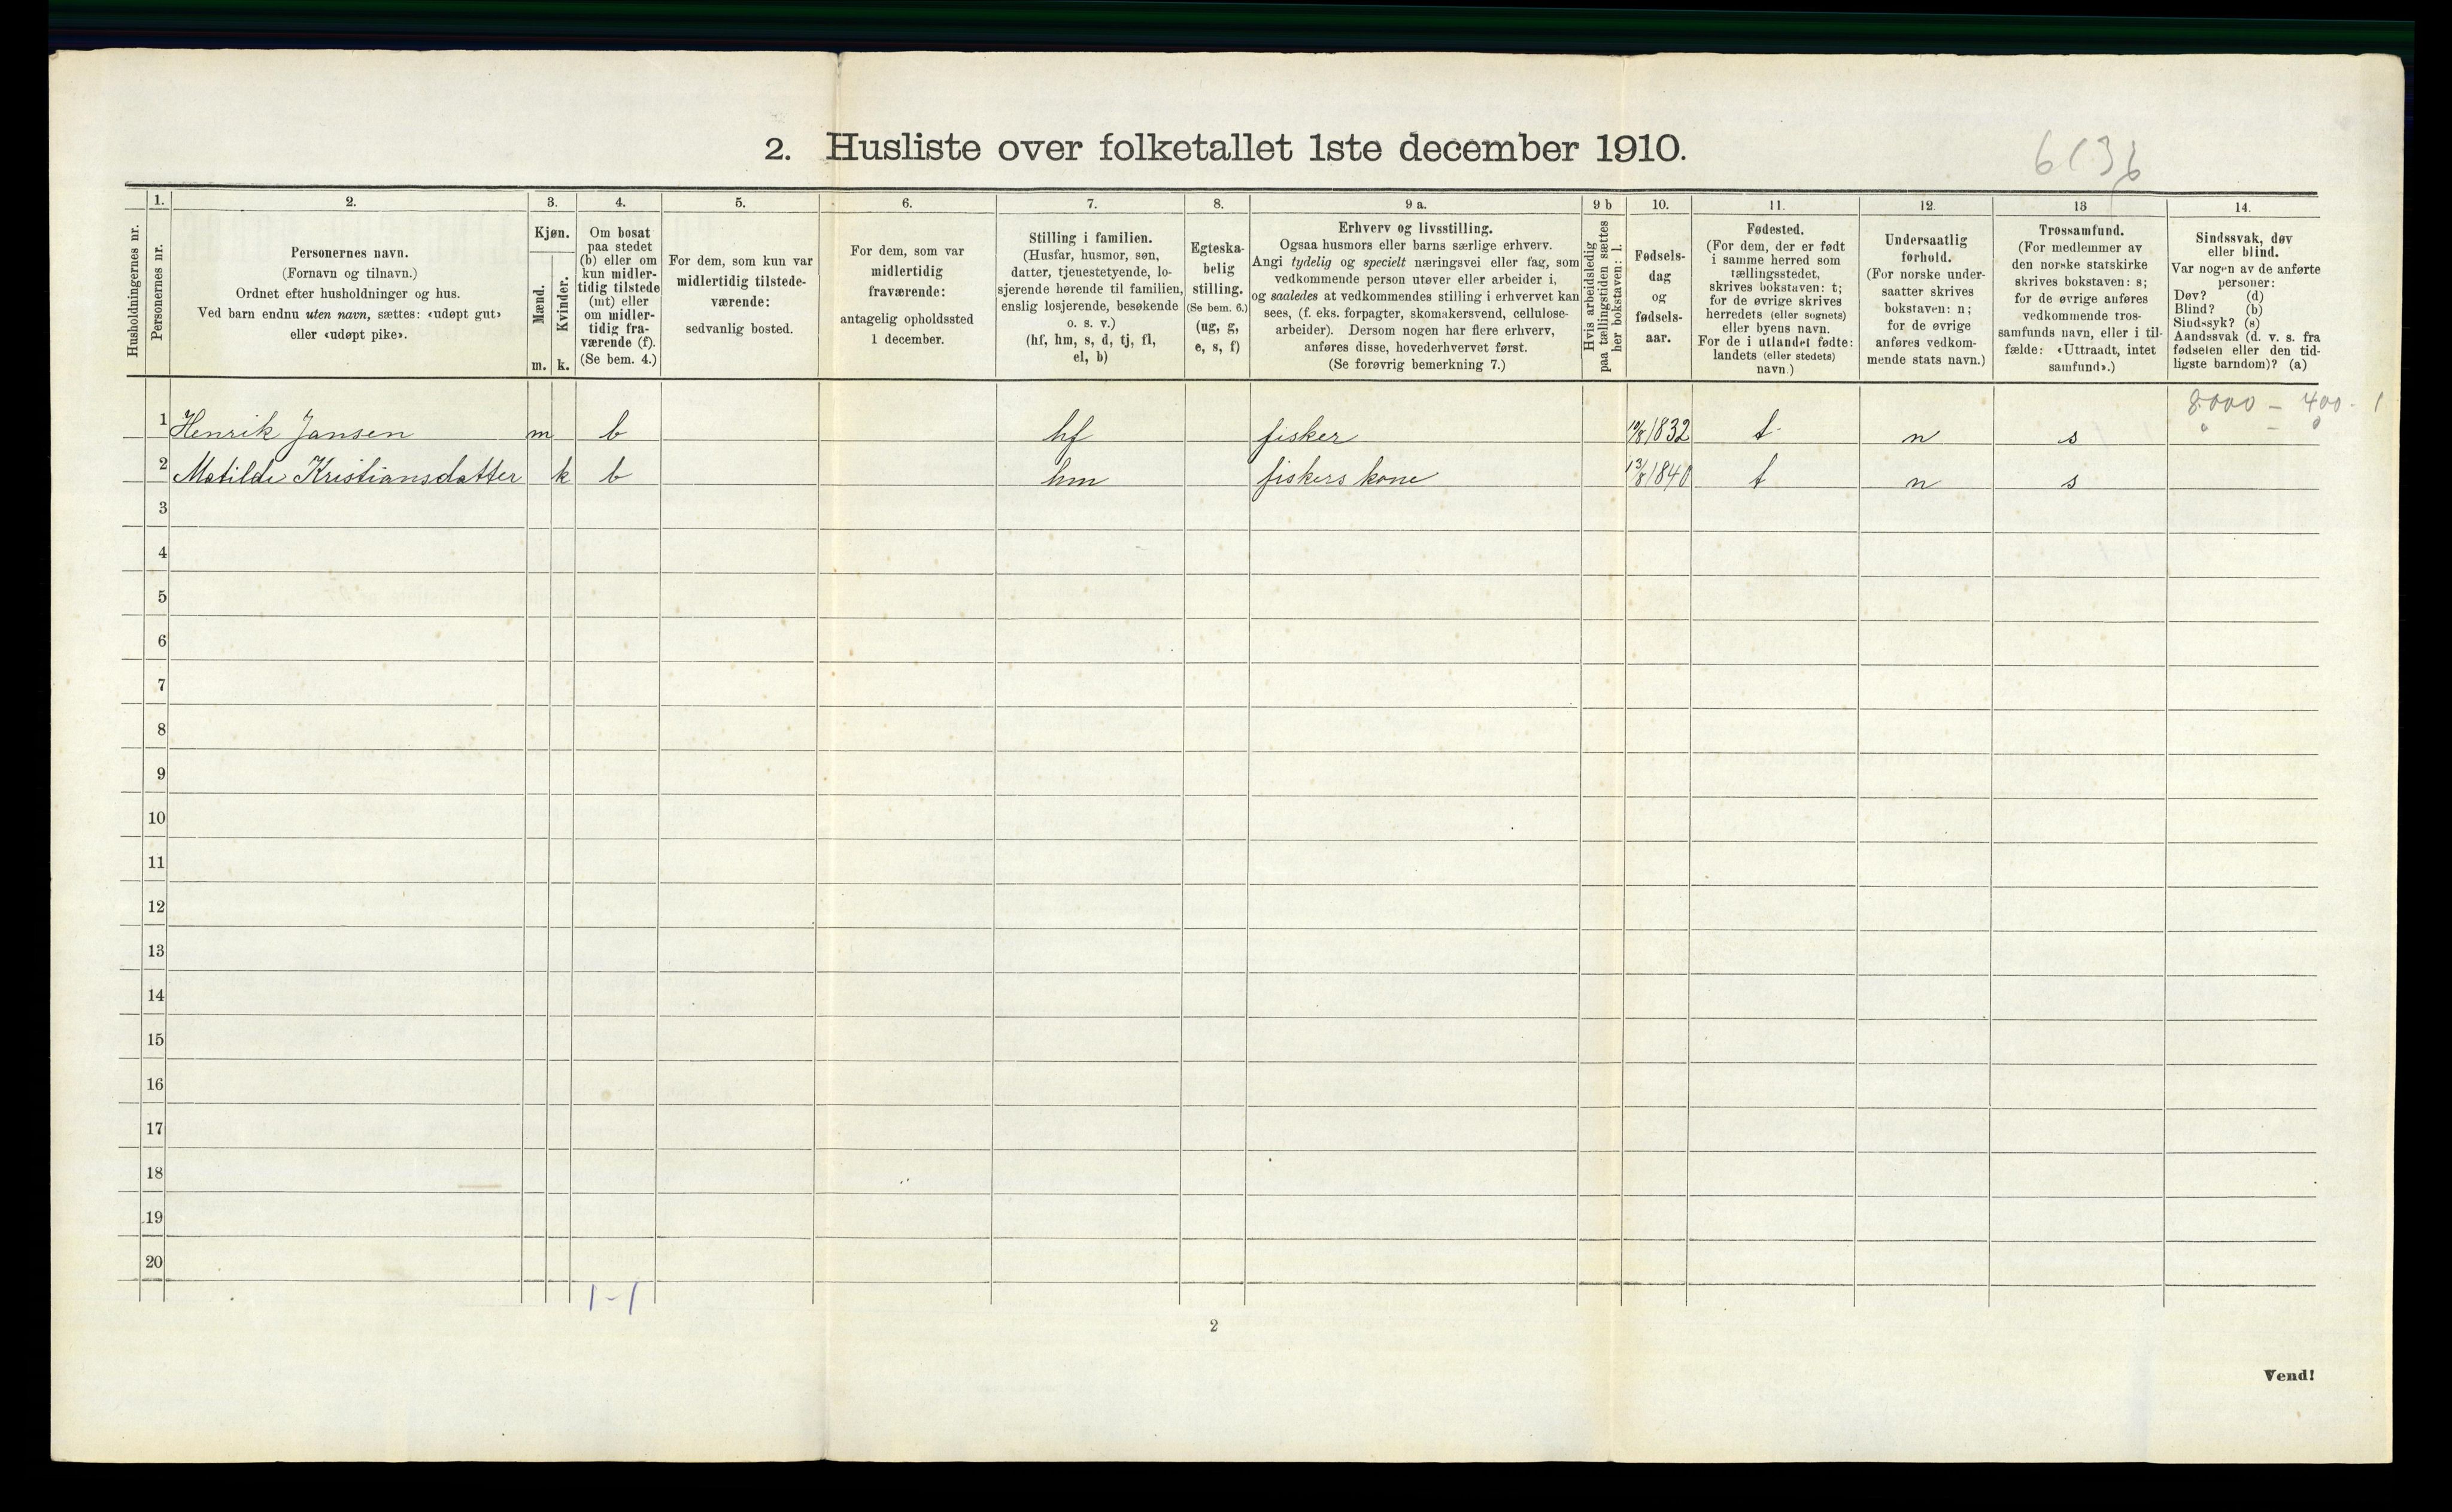 2. Husliste over folketallet 1ste december 1910.
Husholdningernes nr.
1.
Personernes nr.
2.
Personernes navn.
(Fornavn og tilnavn.)
Ordnet efter husholdninger og hus.
Ved barn endnu uten navn, sættes: «udøpt gut»
eller «udøpt pike».
3.
Kjøn.
Mænd.
m.
Kvinder.
k.
4.
Om bosat
paa stedet
(b) eller om
kun midler-
tidig tilstede
(mt) eller
om midler-
tidig fra-
værende (f).
(Se bem. 4.)
5.
For dem, som kun var
midlertidig tilstede-
værende:
sedvanlig bosted.
6.
For dem, som var
midlertidig
fraværende:
antagelig opholdssted
1 december.
7.
Stilling i familien.
(Husfar, husmor, søn,
datter, tjenestetyende, lo-
sjerende hørende til familien,
enslig losjerende, besøkende
o. s. v.)
(hf, hm, s, d, tj, fl,
el, b)
8.
Egteska-
belig
stilling.
(Se bem. 6.)
(ug, g,
e, s, f)
9 a.
Erhverv og livsstilling.
Ogsaa husmors eller barns særlige erhverv.
Angi tydelig og specielt næringsvei eller fag, som
vedkommende person utøver eller arbeider i,
og saaledes at vedkommendes stilling i erhvervet kan
sees, (f. eks. forpagter, skomakersvend, cellulose-
arbeider). Dersom nogen har flere erhverv,
anføres disse, hovederhvervet først.
(Se forøvrig bemerkning 7.)
9 b
Hvis arbeidsledig
paa tællingstiden sættes
her bokstaven: l.
10.
Fødsels-
dag
og
fødsels-
aar.
11.
Fødested.
(For dem, der er født
i samme herred som
tællingsstedet,
skrives bokstaven: t;
for de øvrige skrives
herredets (eller sognets)
eller byens navn.
For de i utlandet fødte:
landets (eller stedets)
navn.)
12.
Undersaatlig
forhold.
(For norske under-
saatter skrives
bokstaven: n;
for de øvrige
anføres vedkom-
mende stats navn.)
13
Trossamfund.
(For medlemmer av
den norske statskirke
skrives bokstaven: s;
for de øvrige anføres
vedkommende tros-
samfunds navn, eller i til-
fælde: «Uttraadt, intet
samfund».)
14.
Sindssvak, døv
eller blind.
Var nogen av de anførte
personer:
Døv? (d)
Blind? (b)
Sindssyk? (s)
Aandssvak (d. v. s. fra
fødselen eller den tid-
ligste barndom)? (a)
8000 - 400 - 1
0 - 0
1 Henrik Jansen m b hf fisker 1832 t n s
2 Matilde Kristiansdatter k b hm fiskers kone 13/8 1840 t n s
3
4
5
6
7
8
9
10
11
12
13
14
15
16
17
18
19
20
1-1
2
Vend!